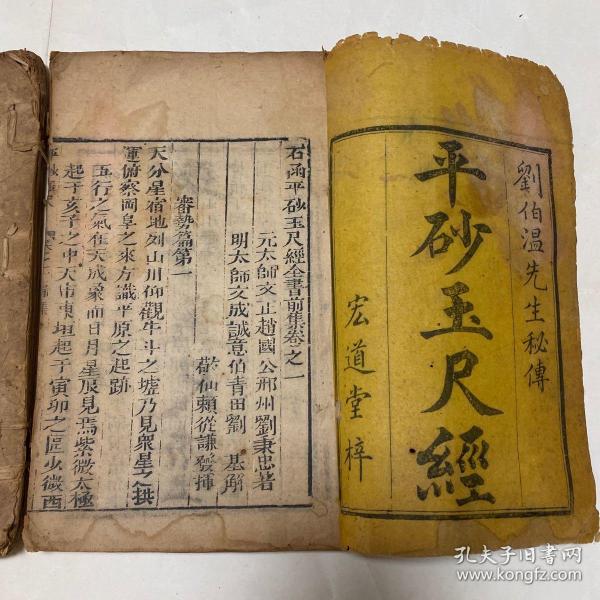 劉伯温先生秘傳
平砂玉尺經
宏道堂梓
石函平砂玉尺經全書前集卷之一
元太師文正趙國公邢州劉秉忠著
明太師文成誠意伯青田劉基解
賴從謙發揮
審勢篇第一
天分星宿地列山川仰觀牛斗之墟乃見衆星之拱
運俯察岡阜之來方識平原之起跡
五行之氣在天成象而日月星辰見焉紫微太極
起于亥子之中天市東垣起于寅卯之區少微西
孔夫子旧书网
www.kongfz.com